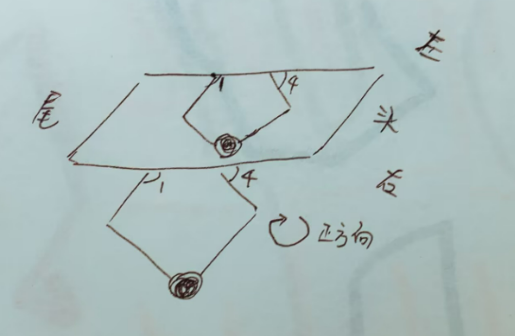 左
4
1
尾
头
右
1
4
正方向